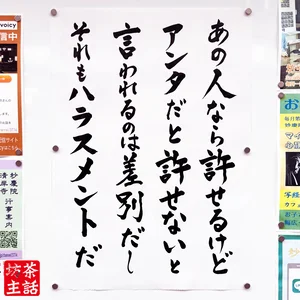 あの人なら許せるけど
アンタだと許せないと
言われるのは差別だし
それもハラスメントだ
voicy
信中
妙慶院
清岸寺
行事案内
坊主
茶話
お